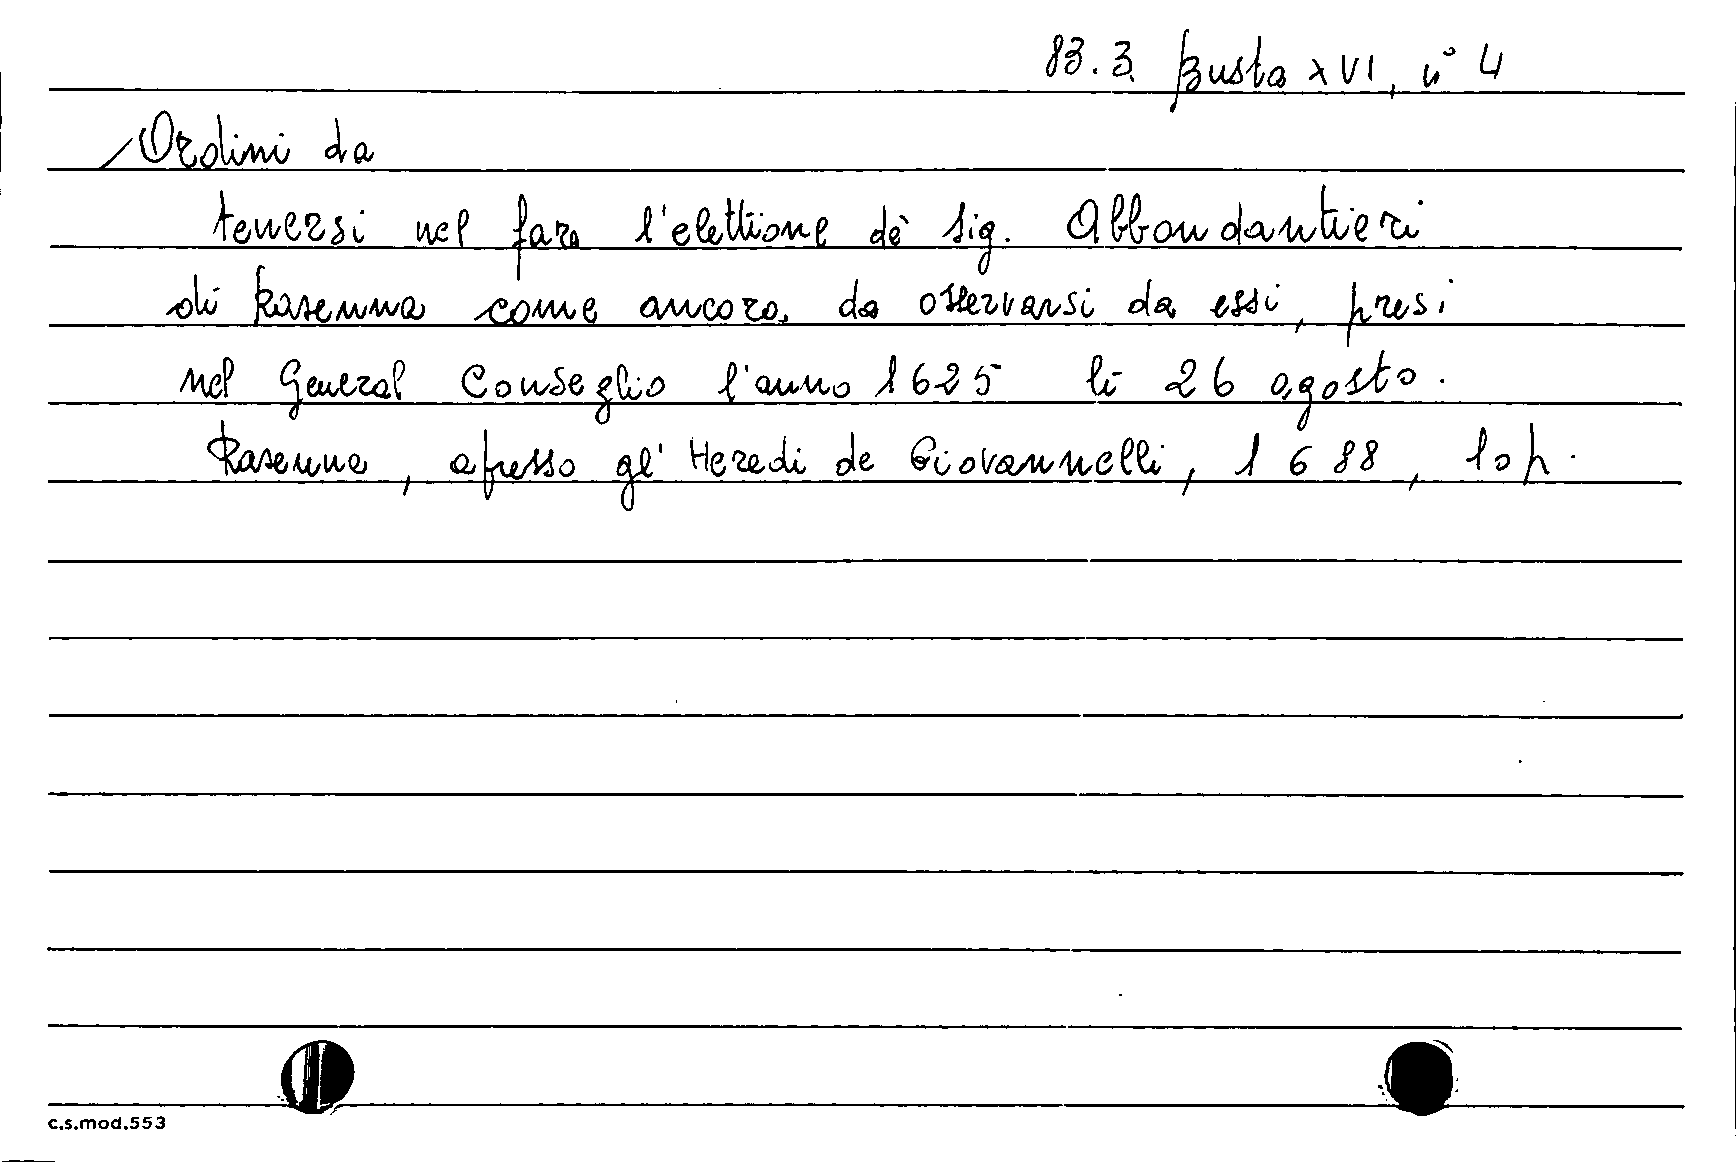 83.3. Busta XVI, n° 4
Ordini da
tenersi nel fare l'elettione dè sig. Abbondantieri
di Ravenna come ancora da osservarsi da essi, presi
nel General Conseglio l'anno 1625 li 26 agosto.
Ravenna, apresso gl' Heredi de Giovannelli, 1688, 10p.
c.s.mod.553